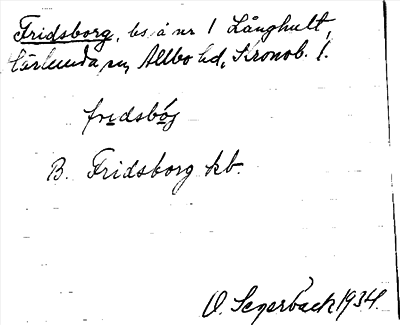 Fridsborg, ls å nr 1 Långhult,
Härlunda sn, Allbo hd, Kronob. l.
fridsbórj
B. Fridsborg kb.
O. Segerbäck 1934.